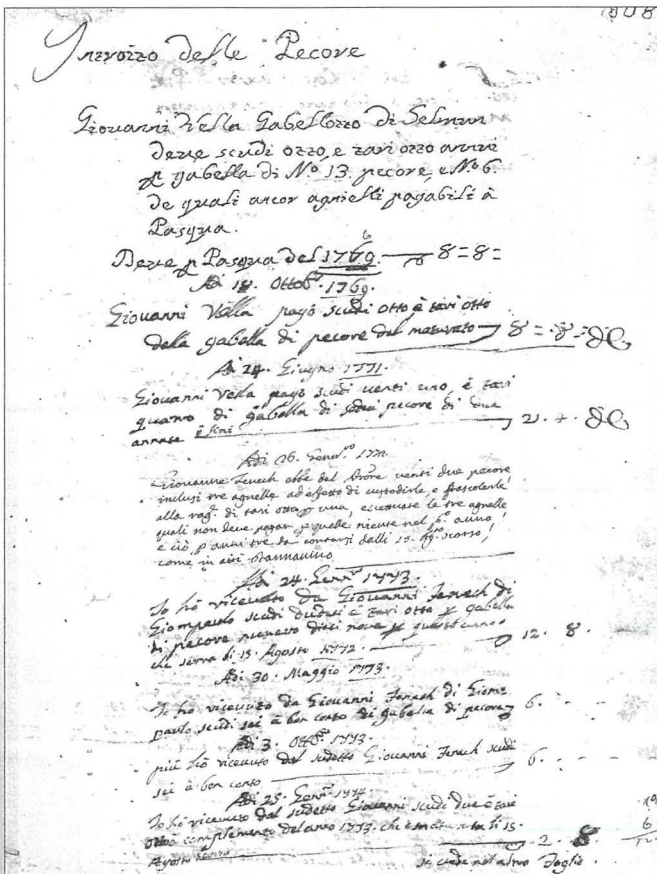 108
Introito delle Pecore
Giovanni Vella Gabellotto di Selmun
deve scudi otto, e tari otto annui
p gabella di N.º 13. pecore, e N.º 6.
de quali ancor agnielli pagabili à
Pasqua.
6
Deve p Pasqua del 1769. 8=8=
Adi 18. Ottob.e 1769.
Giovanni Vella pagò scudi otto è tari otto
della gabella di pecore del maturato 8=8=
Adi 24. Giugno 1771.
Giovanni Vella pagò scudi venti uno, è tari
quatro di gabella di pecore di due
annate 21. 4.
Adi 26. Genn.ro
Giovanne Fenech ebbe dal venti due pecore
inclusi tre agnelle ad effetto di custodirle, e pascolarle
alla rag.e di tari otto p una, eccettuate le tre agnelle
quali non deve pagar p quelle niente nel p.º anno,
e ciò p anni tre da contarsi dalli 15. scorso,
come in atti
Adi 24. Genn.ro 1773.
Io hò ricevuto da Giovanni Fenech di
Giompaulo scudi dudici è tari otto p gabella
di pecore numero dieci nove p quest anno
che li 15. Agosto 1772. 12. 8.
Adi 30. Maggio 1773.
Io hò ricevuto da Giovanni Fenech di Giom
paulo scudi sei à bon conto di gabella di pecore 6.
Adi 3. Ottb.e 1773.
più hò ricevuto dal sudetto Giovanni Fenech scudi
sei à bon conto 6.
Adi 25. Genn.ro 1774.
Io hò ricevuto dal sudetto Giovanni scudi due è tari
otto à complemento del anno 1773. che è maturata li 15.
Agosto 2. 8
si vede nel altro foglio.